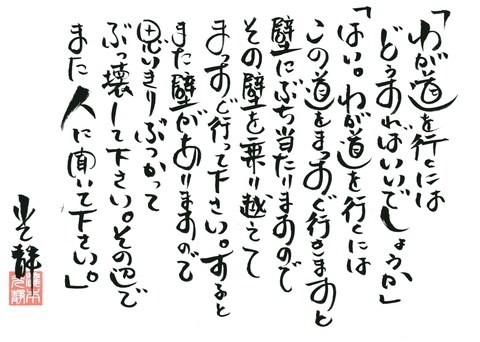 「わが道を行くには
どうすればいいでしょうか」
「はい。わが道を行くには
この道をまっすぐ行きますと
壁にぶち当たりますので
その壁を乗り越えて
まっすぐ行って下さい。すると
また壁がありますので
思いきりぶつかって
ぶっ壊して下さい。その辺で
また人に聞いて下さい。」